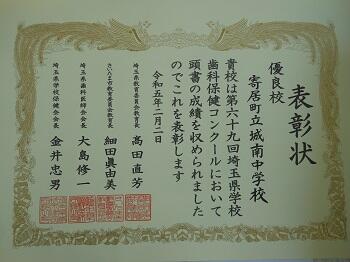 表彰状
優良校
寄居町立城南中学校
貴校は第六十九回埼玉県学校
歯科保健コンクールにおいて
頭書の成績を収められました
のでこれを表彰します
令和五年二月二日
埼玉県教育委員会教育長 高田直芳
さいたま市教育委員会教育長 細田眞由美
埼玉県歯科医師会会長 大島修一
埼玉県学校保健会会長 金井忠男